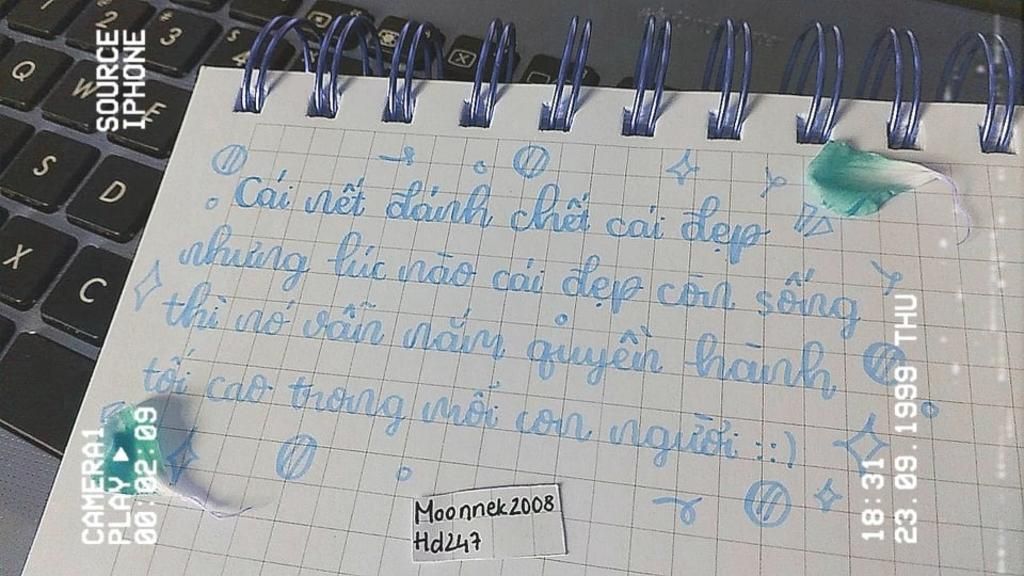 SOURCE
IPHONE
1
2
3
$
4
Q
W
S
D
X
C
Cái nết đánh chết cái đẹp
nhưng lúc nào cái đẹp còn sống
thì nó vẫn nắm quyền hành
tối cao trong mỗi con người ::)
CAMERA1
PLAY ▶
00:02:09
18:31
23.09.1999 THU
Moonnek2008
Hd247